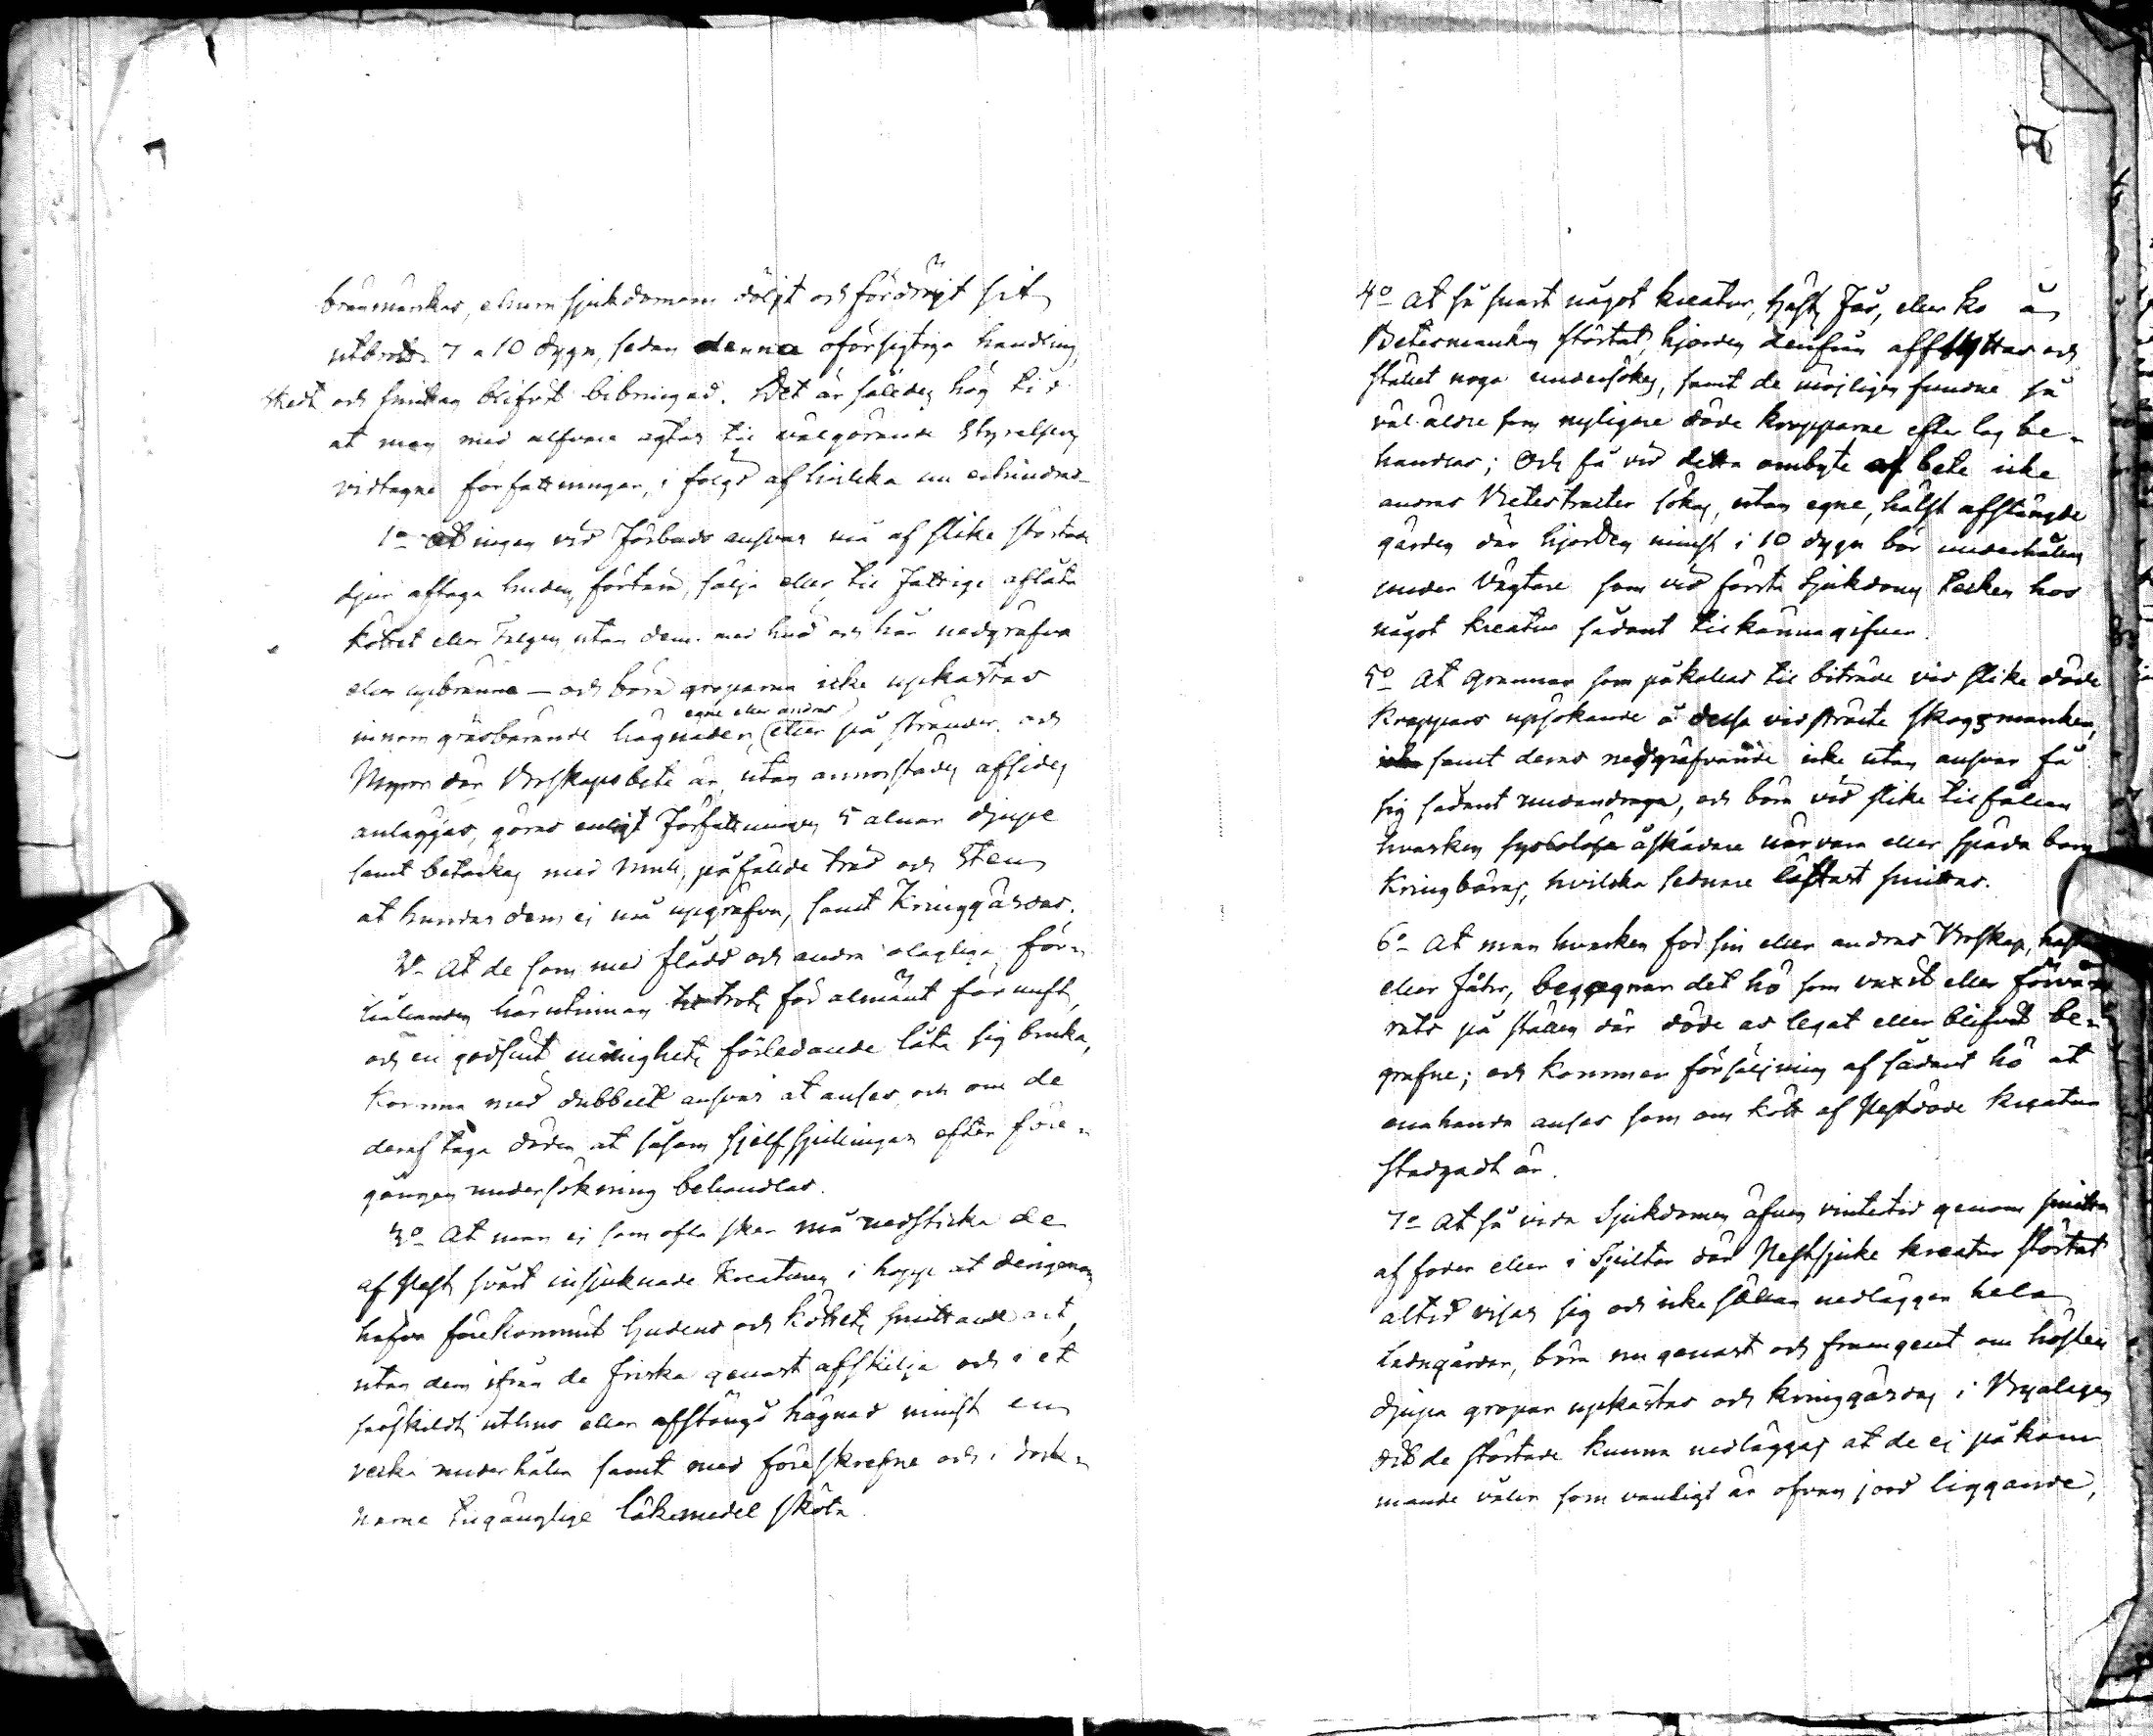 brännmärkas, ehuru sjukdomen döljt och fördröjt sit
utbrott 7 a 10 dygn, sedan denna oförsigtiga handling
skedt och smittan blifvit bibringad. Det är således hög tid
at man med alfvare agtar til välgörande Styrelsens
vidtagne författningar, i följd af hvilka nu erhindras
1o At ingen vid Förbuds ansvar må af slike störtade
djur aftaga huden, förtära, sälja eller til Fattige aflåta
köttet eller Talgen, utan dem med hud och hår nedgräfva
eller upbränna — och böra groparna icke upkastas
innom gräsbärande hägnader, egne eller andras eller på stränder och
Myror där Boskapsbete är, utan annorstädes afsides
anläggas, göras enligt Författningen 5 alnar djupe
samt betäckas med mull, påfälde träd och Sten
at hundar dem ej må upgräfva, samt Kringgärdas.
2o At de som med flådd och andra olagliga för-
hållanden härutinnan trots för almänt förnuft,
och en godsint menighets förledande låta sig bruka,
komma med dubbelt ansvar at anses, och om de
deraf taga döden at såsom sjelfspillingar efter före-
gången undersökning behandlas.
3o At man ej som ofta sker må nedsticka de
af Pest svårt insjuknade Kreaturen i hopp at derigenom
hafva förekommit hudens och köttets smittande art,
utan dem ifrån de friska genast afskilja och i et
särskildt uthus eller afstängd hägnad minst en
vecka underhålla samt med föreskrefne och i Sock-
narne tilgänglige läkemedel sköta.
4o At så snart något kreatur, Häst, Får, eller ko å
Betesmarken störtat, hjorden derifrån afflyttas och
stället noga undersökes, samt de möjligen fundne så
väl äldre som nyligare döde kropparne efter lag be-
handlas; och få vid detta ombyte af bete icke
andras Betestracter sökas, utan egne, hälst afstängde
gärden där hjorden minst i 10 dygn bör underhållas
under Vagtare som vid första Sjukdoms tecken hos
något kreatur sådant tilkännagifver.
5o At Grannar som påkallas til biträde vid slike döde
Kroppars upsökande å desse vidsträckte skogsmarker,
samt deras nedgräfvande icke utan ansvar få
sig sådant undandraga, och böra vid slike tilfällen
hvarken sysslolösa åskådare närvara eller späda barn
Kringbäras, hvilka sednare lättast smittas.
6o At man hvarken för sin eller andras Boskap, hästar
eller Fåhr, begagnar det hö som vaxit eller förva-
rats på ställen där döde as legat eller blifvit be-
grafne; och kommer försäljning af sådant hö at
enahanda anses som om kött af Pestdöde kreatur
stadgadt är.
7o At så vida Sjukdomen äfven vintertid genom smitta
af foder eller i Spiltor där Pestsjuke kreatur störtat
altid visar sig och icke sällan nedlägger hela
Ladugårdar, böra nu genast och framgent om hösten
djupa gropar upkastas och kringgärdas i Byalagen
dit de störtade kunna nedläggas at de ej på kom-
mande våren som vanligt är ofvan jord liggande,